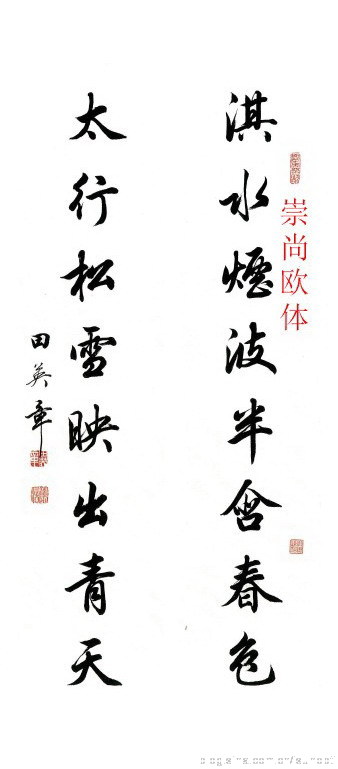 淇水煙波半含春色
太行松雪映出青天
田英章
崇尚欧体